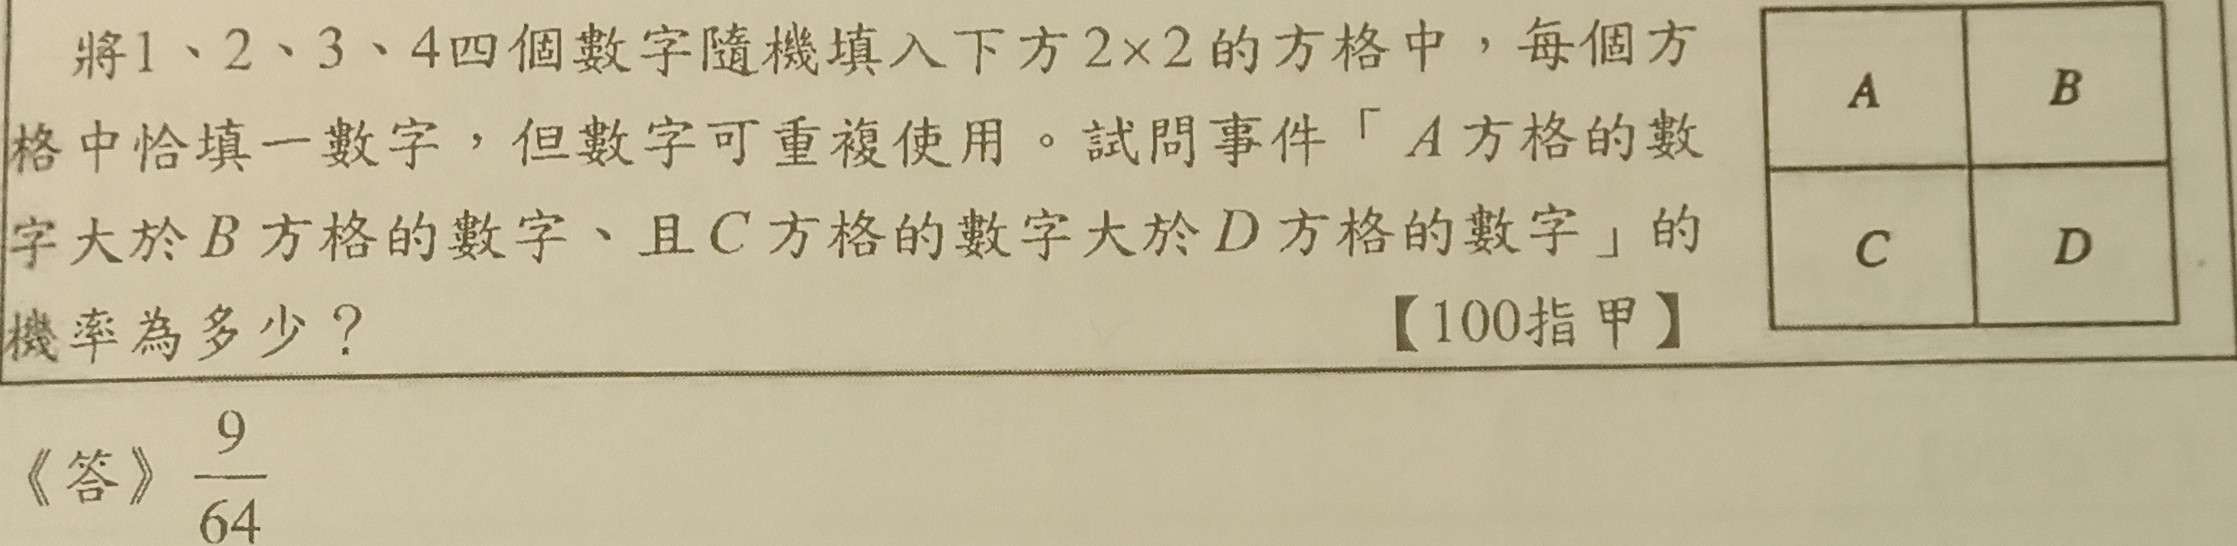 將1、2、3、4四個數字隨機填入下方2×2的方格中，每個方
格中恰填一數字，但數字可重複使用。試問事件「A方格的數
字大於B方格的數字、且C方格的數字大於D方格的數字」的
機率為多少？
【100指甲】
A B
C D
《答》9/64